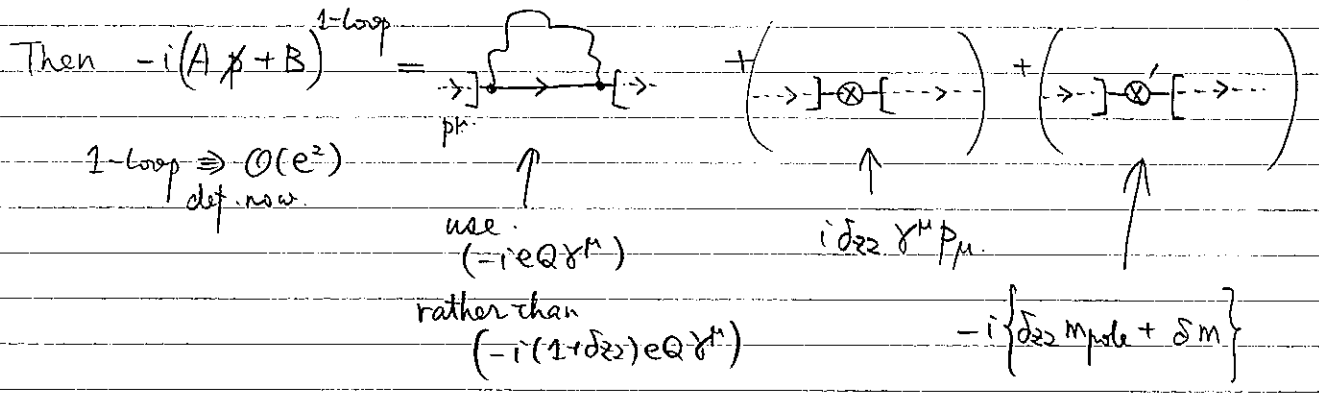 1-loop
Then -i(A p̸ + B) = + ( ) + ( ⊗' )
pμ.
1-loop ⇒ O(e²)
def. now.
use.
(-i e Q γ^μ)
rather than
(-i(1+δz2) e Q γ^μ)
i δz2 γ^μ pμ.
-i{δz2 m pole + δm}